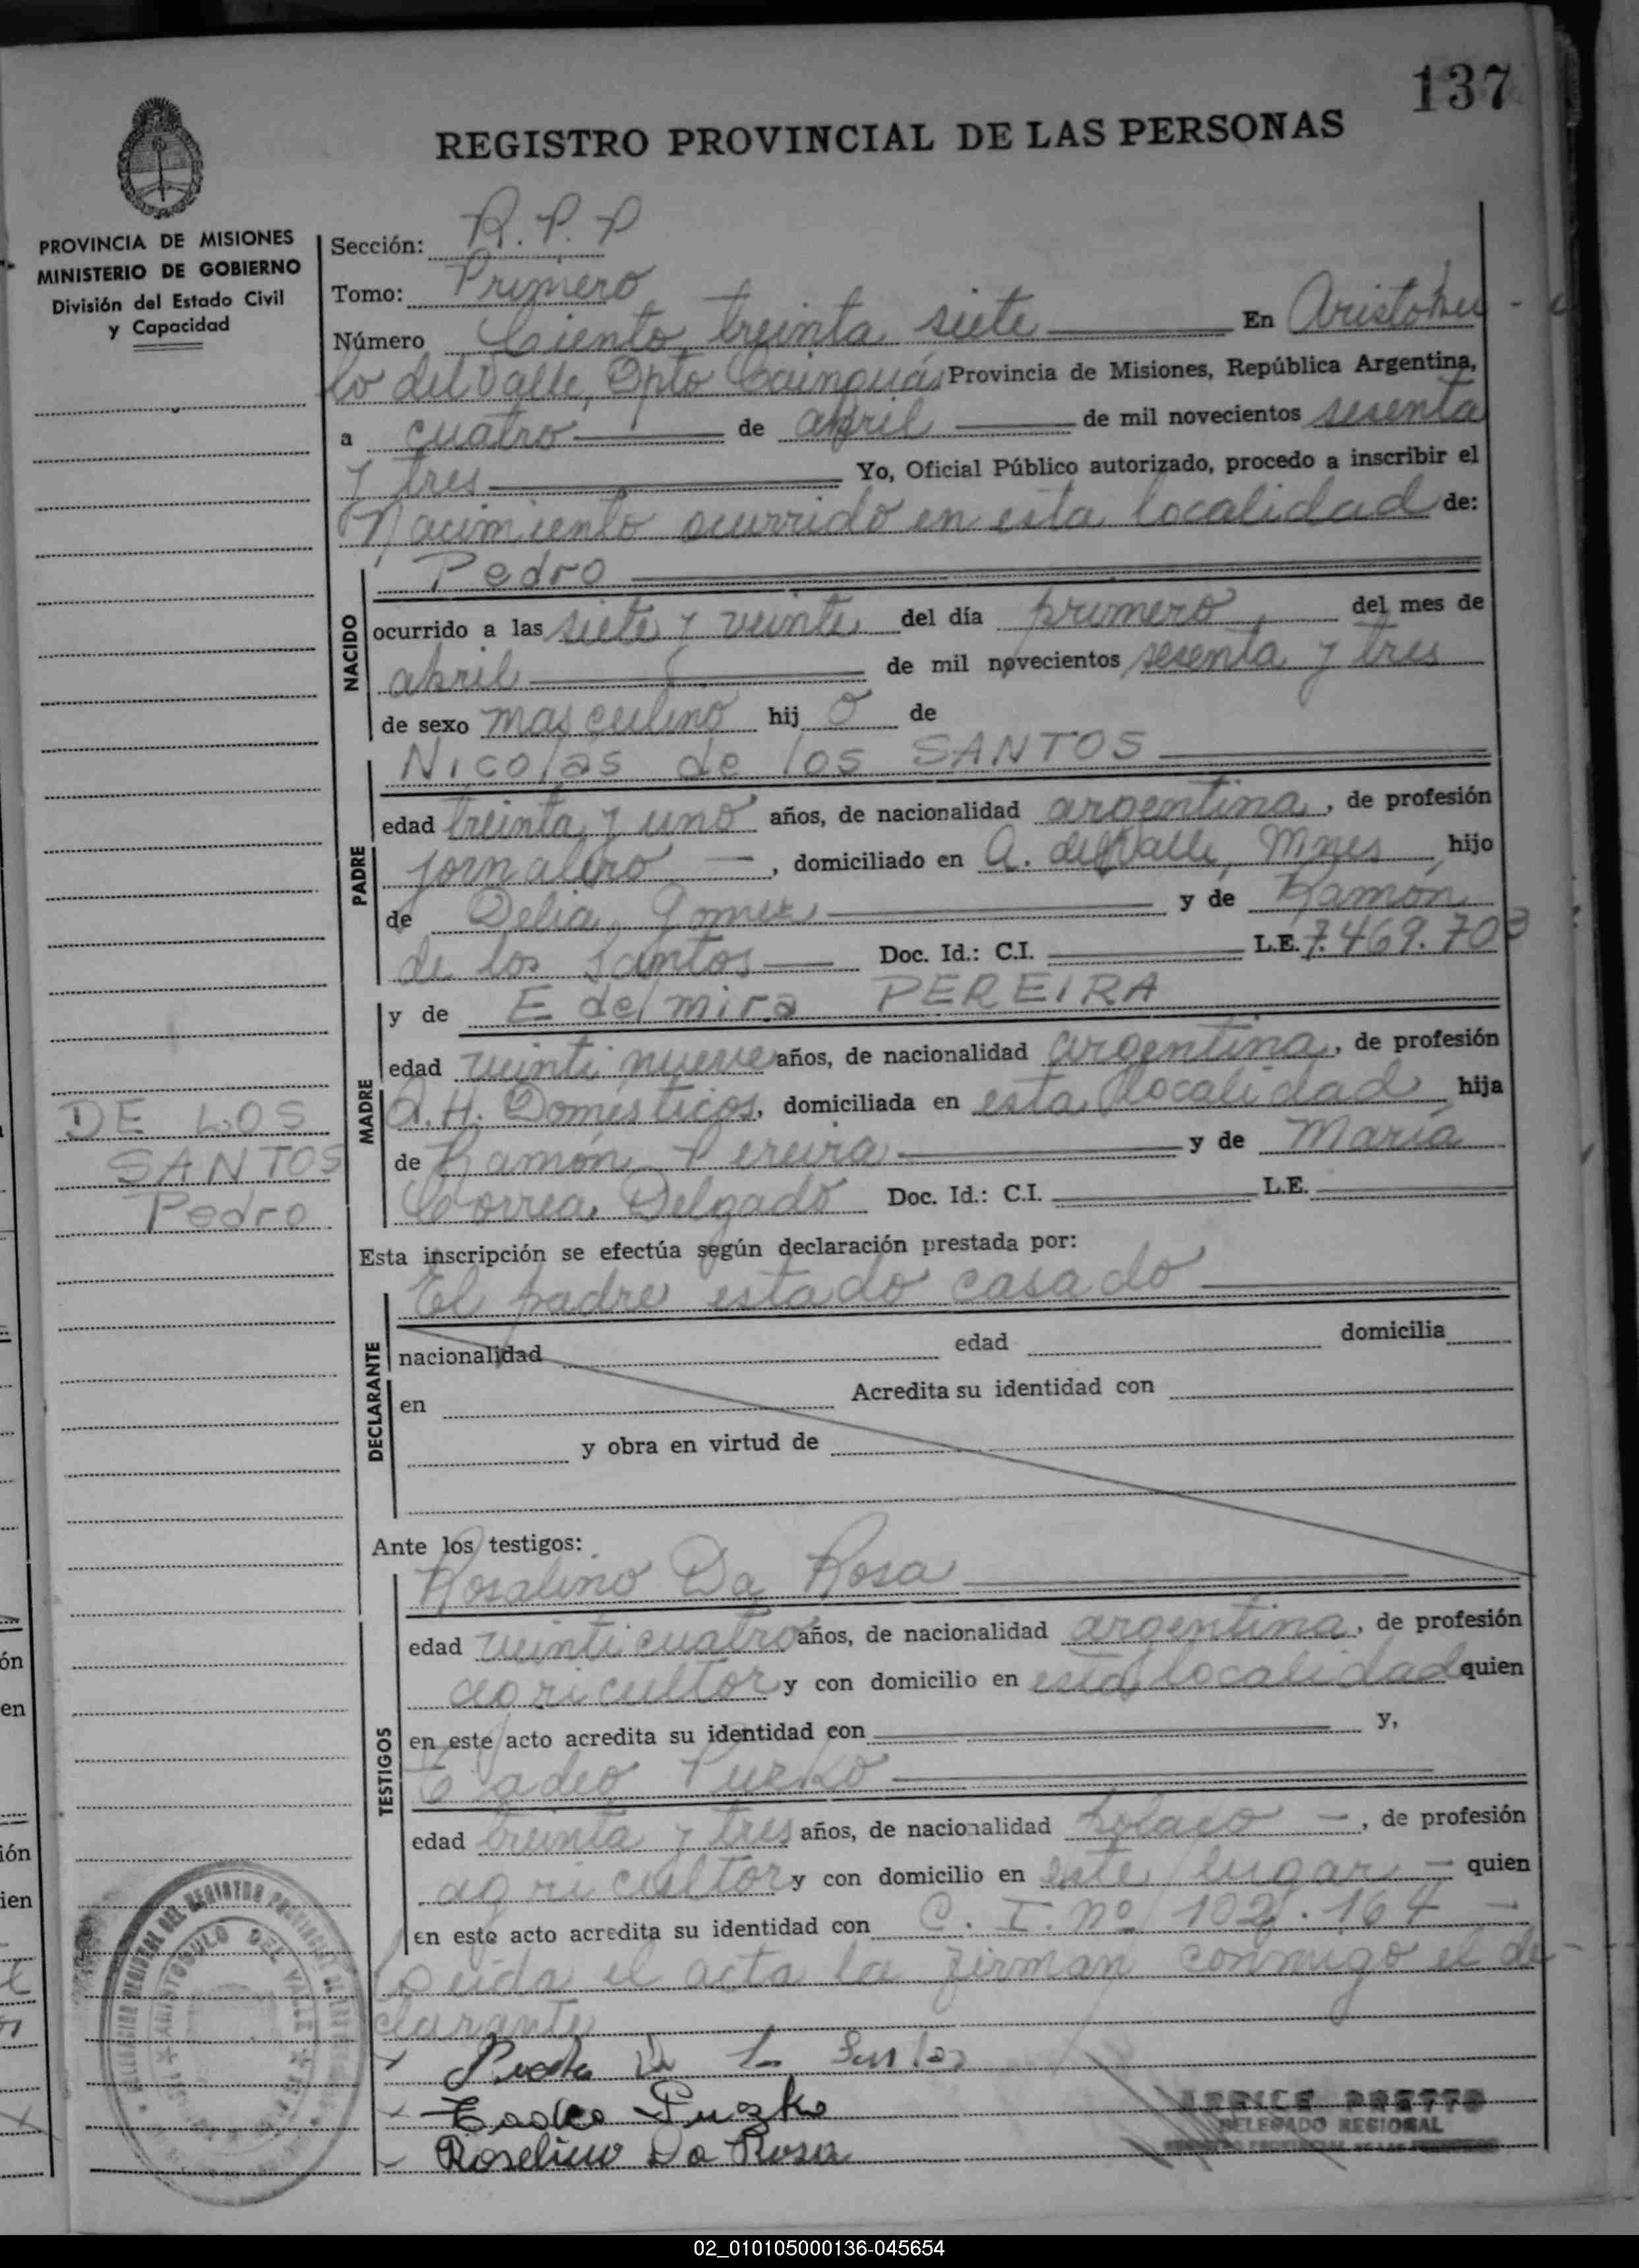 137
REGISTRO PROVINCIAL DE LAS PERSONAS
PROVINCIA DE MISIONES
MINISTERIO DE GOBIERNO
División del Estado Civil
y Capacidad
Sección: R.P.P
Tomo: Primero
Número Ciento treinta siete En Aristóbu-
lo del Valle, Dpto Cainguás Provincia de Misiones, República Argentina,
a cuatro de abril de mil novecientos sesenta
y tres Yo, Oficial Público autorizado, procedo a inscribir el
Nacimiento ocurrido en esta localidad de:
NACIDO
Pedro
ocurrido a las siete y veinte del día primero del mes de
abril de mil novecientos sesenta y tres
de sexo masculino hijo de
PADRE
Nicolás de los SANTOS
edad treinta y uno años, de nacionalidad argentina, de profesión
jornalero, domiciliado en A. del Valle, Mnes hijo
de Delia Gomez y de Ramón
de los Santos Doc. Id.: C.I. L.E. 7.469.703
MADRE
y de Edelmira PEREIRA
edad veinti nueve años, de nacionalidad argentina, de profesión
Q.H. Domésticos, domiciliada en esta localidad hija
de Ramón Pereira y de María
Correa Delgado Doc. Id.: C.I. L.E.
DE LOS
SANTOS
Pedro
Esta inscripción se efectúa según declaración prestada por:
DECLARANTE
El padre estado casado
nacionalidad edad domicilia
en Acredita su identidad con
y obra en virtud de
Ante los testigos:
TESTIGOS
Rosalino Da Rosa
edad veinticuatro años, de nacionalidad argentina, de profesión
agricultor y con domicilio en esta localidad quien
en este acto acredita su identidad con y,
Eadeo Puzko
edad treinta y tres años, de nacionalidad polaco -, de profesión
agricultor y con domicilio en este lugar - quien
en este acto acredita su identidad con C.I. nº 102.164 -
Leída el acta la firman conmigo el de-
clarante
Eadeo Puzko
Roselino Da Rosa
DELEGADO REGIONAL
ARISTOBULO DEL VALLE
02_010105000136-045654